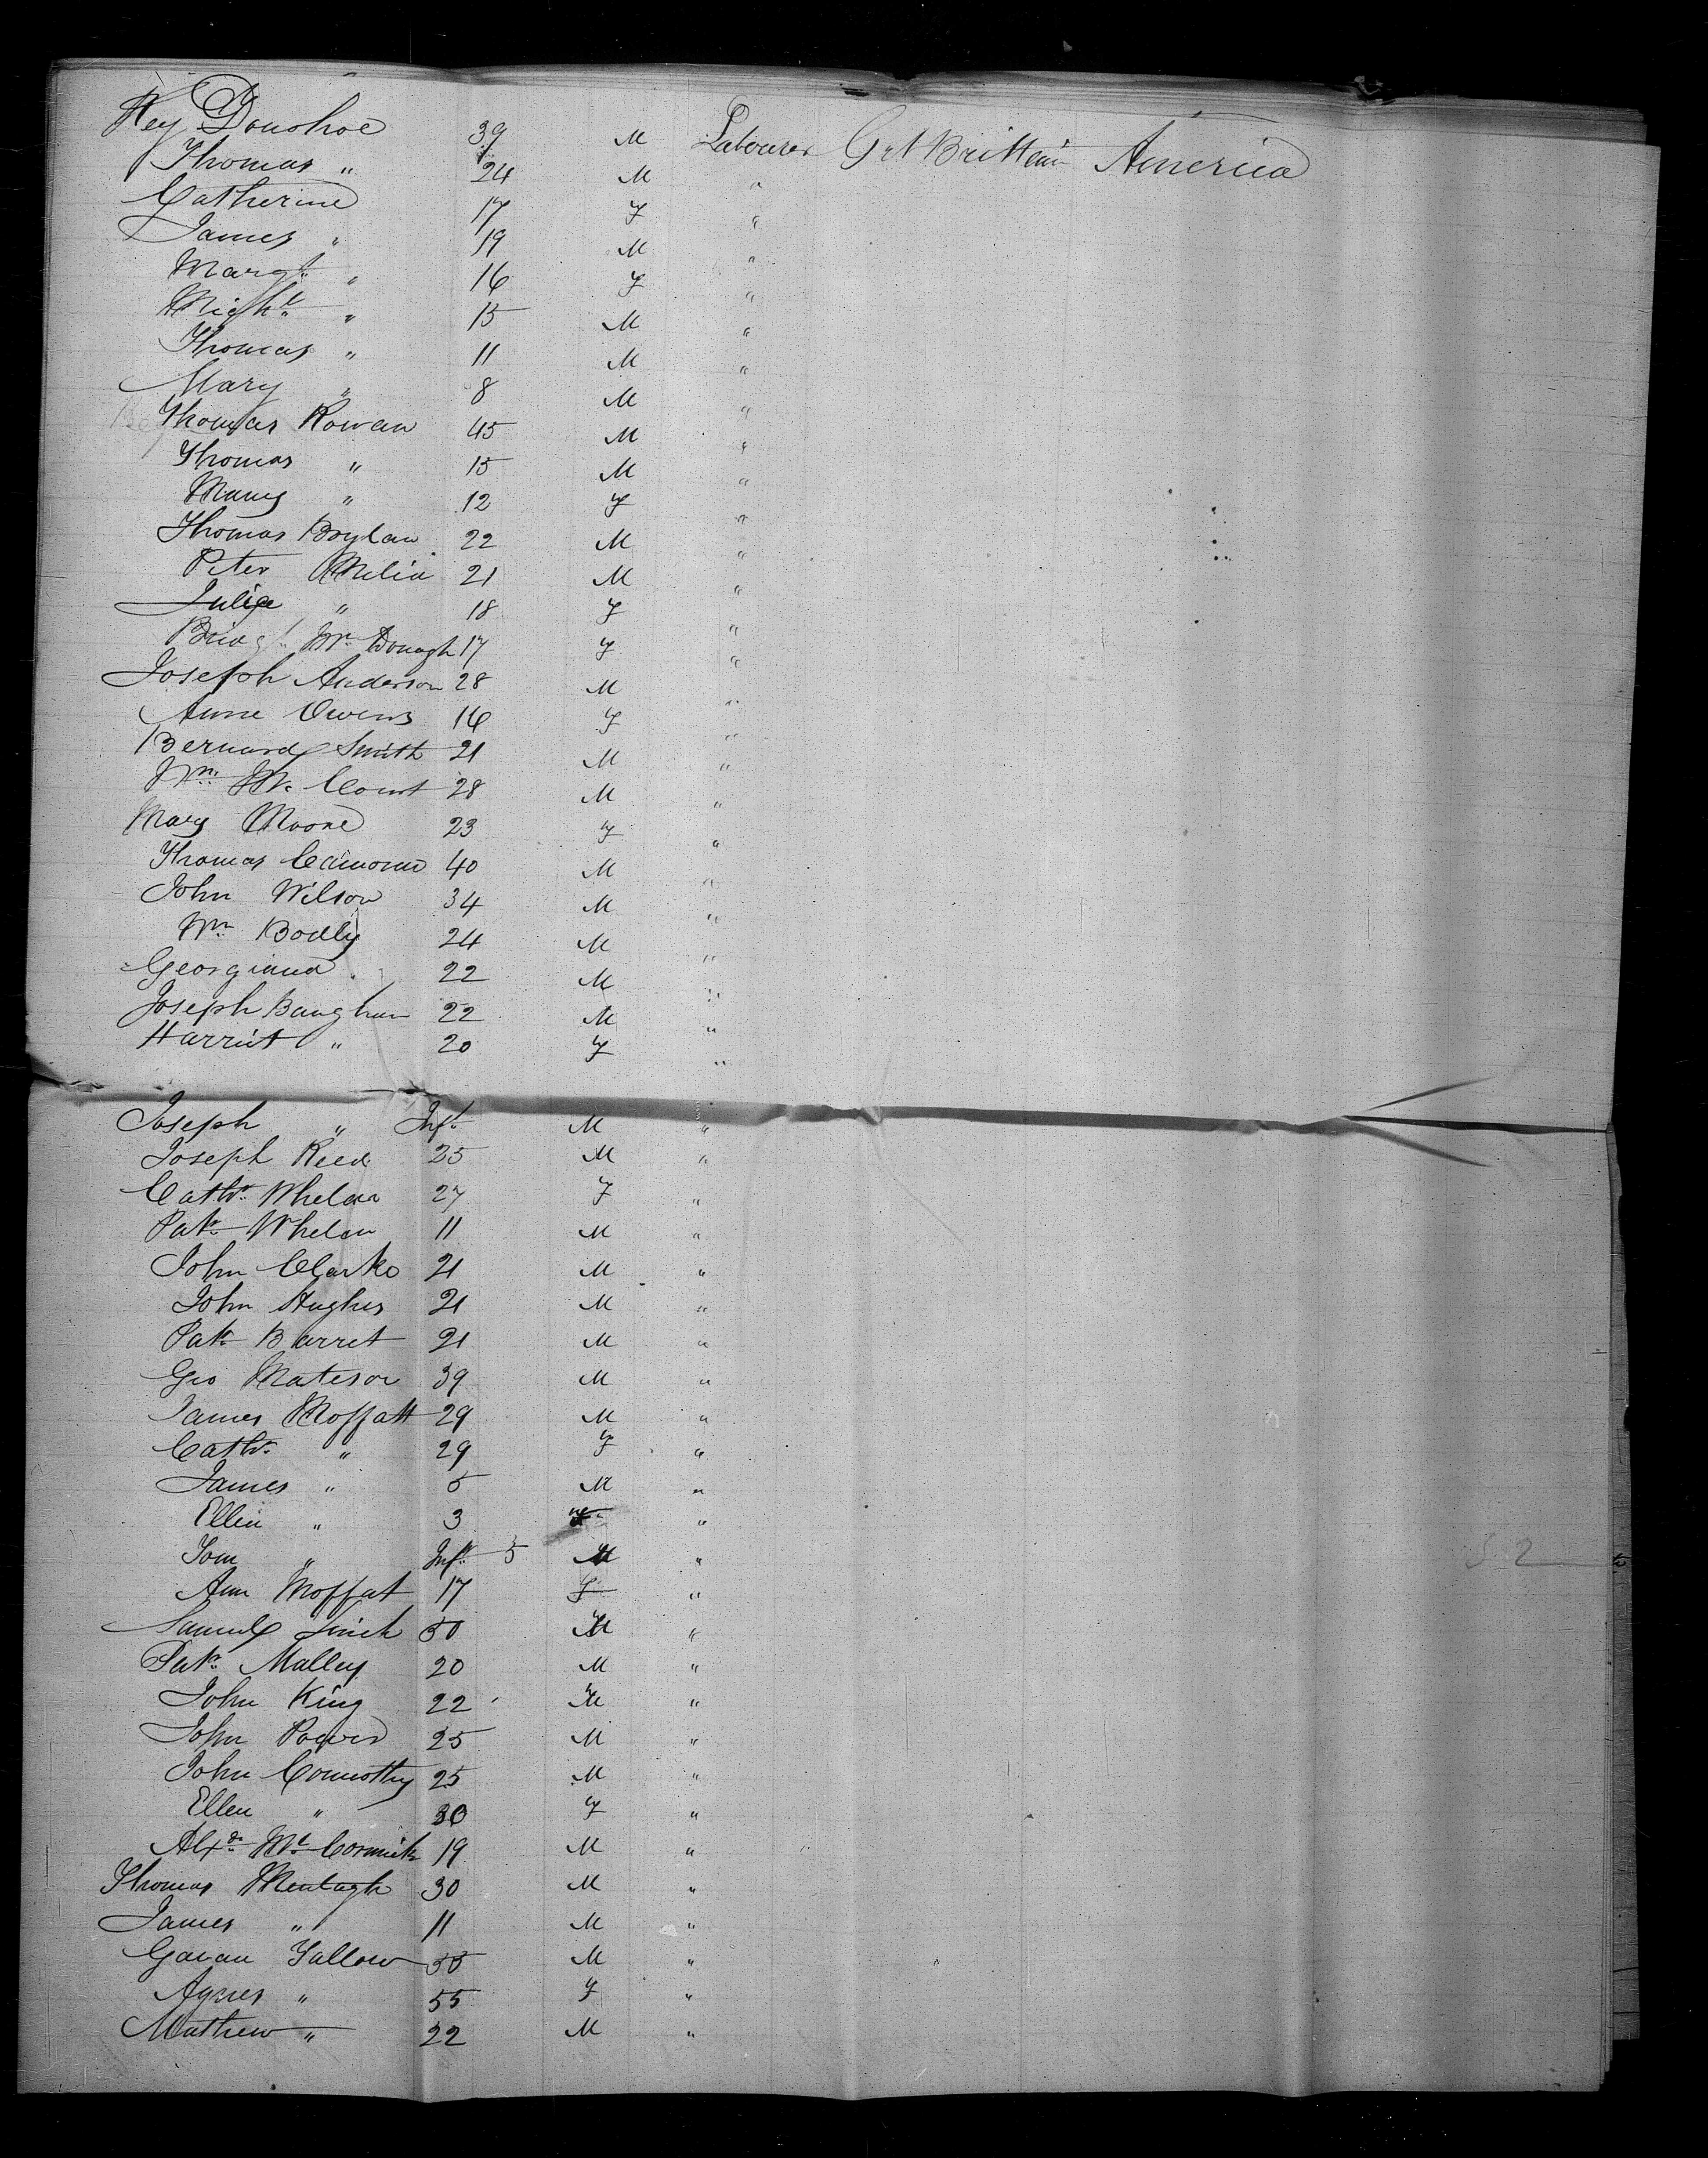 Hey Donohoe 39 M Labourer Grt Brittain America
Thomas " 24 M "
Catherine 17 F "
James " 19 M "
Margt " 16 F "
Michl " 15 M "
Thomas " 11 M "
Mary " 8 M "
Thomas Rowan 45 M "
Thomas " 15 M "
Mary " 12 F "
Thomas Boylan 22 M "
Peter Melia 21 M "
Julia " 18 F "
Bridgt McDonagh 17 F "
Joseph Anderson 28 M "
Anne Owens 16 F "
Bernard Smith 21 M "
Wm McCourt 28 M "
Mary Moore 23 F "
Thomas 40 M "
John Wilson 34 M "
Wm Bodly 24 M "
Georgiana " 22 M "
Joseph Baugham 22 M "
Harriet " 20 F "
Joseph " Inft M "
Joseph Reed 25 M "
Cathe Whelan 27 F "
Patk Whelan 11 M "
John Clarke 21 M "
John Hughes 21 M "
Patk Barret 21 M "
Geo Mateson 39 M "
James Moffatt 29 M "
Cathe " 29 F "
James " 5 M "
Ellen " 3 F "
Tom " Inft 5 M "
Ann Moffat 17 F "
Samuel 50 M "
Patk Malley 20 M "
John King 22 M "
John Power 25 M "
John Connotty 25 M "
Ellen " 30 F "
Alxdr McCormick 19 M "
Thomas Mentagh 30 M "
James " 11 M "
Gavan Tallow 55 M "
Agnes " 55 F "
Mathew " 22 M "
52